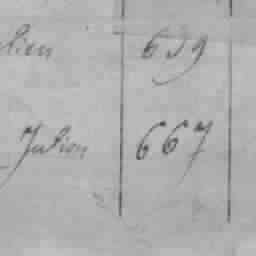 lien 659
Julien 667